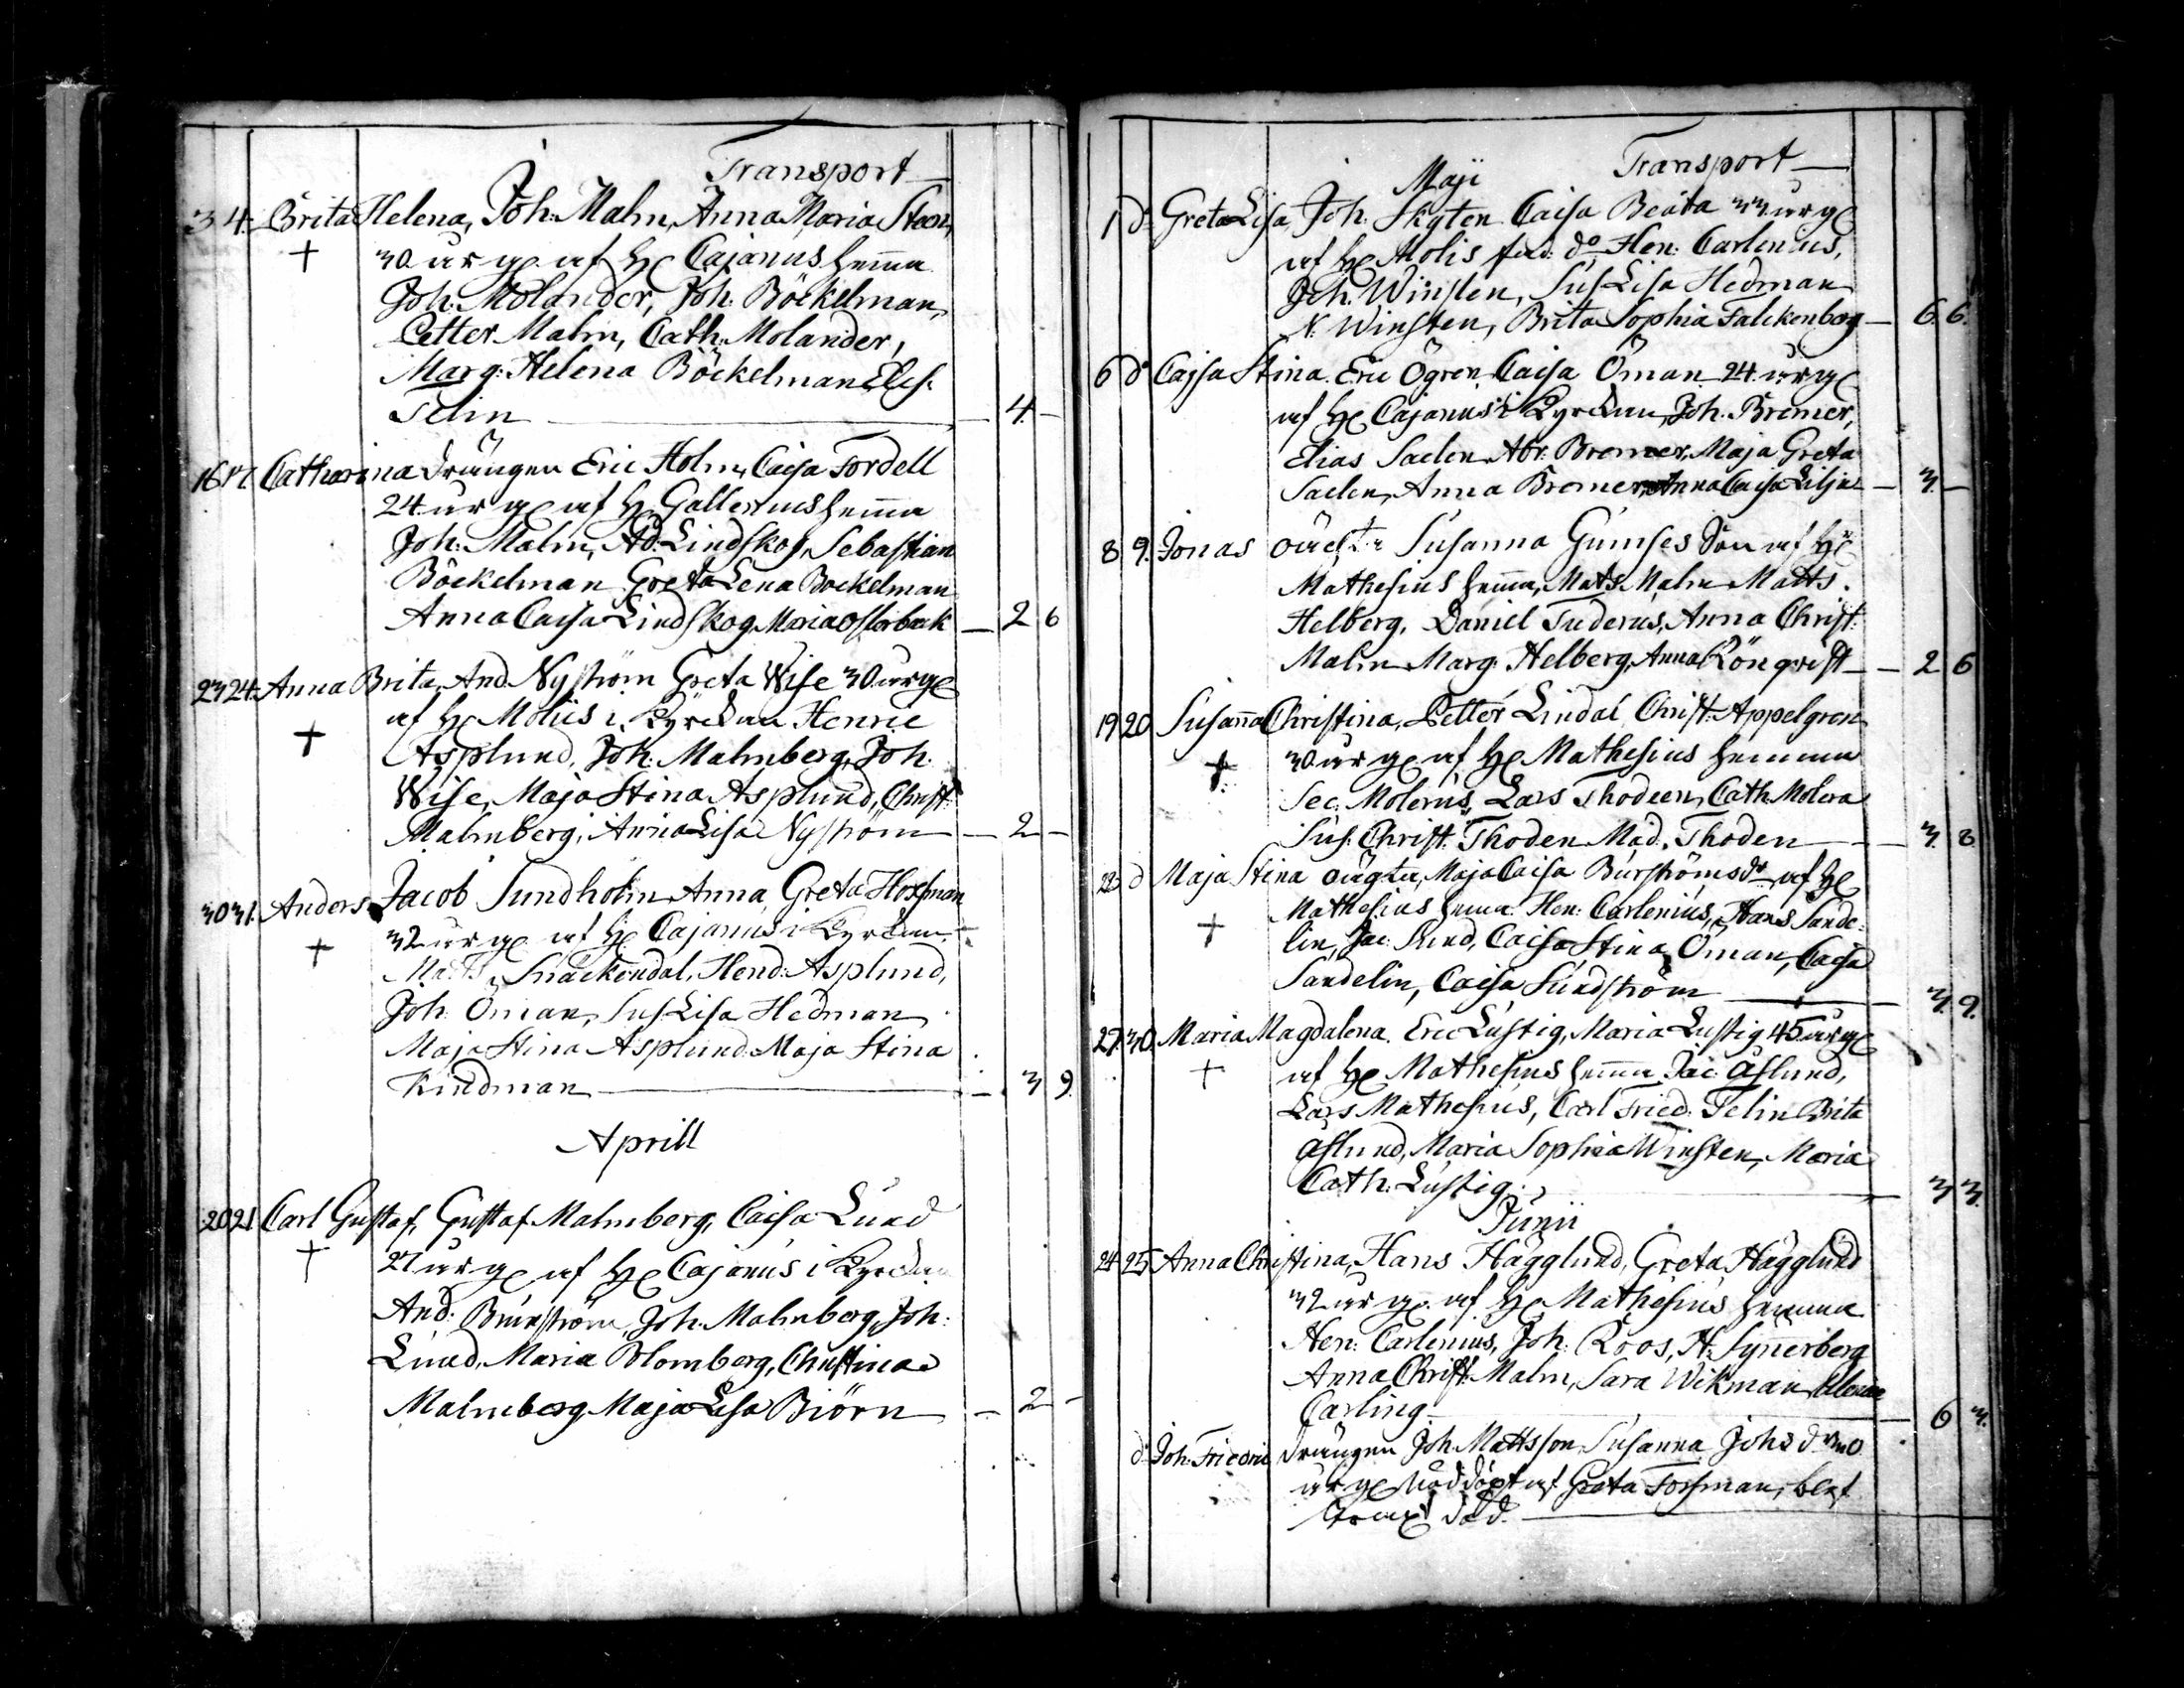 Transport
3 4. Brita Helena, Joh: Malm, Anna Maria Steen,
+ 30 år g. af H Cajanus hemma
Joh. Molander, Joh. Böckelman,
Petter Malm, Cath. Molander,
Marg: Helena Böckelman, Elis.
Telin — 4. —
16 17. Catharina drängen Eric Holm, Caisa Fordell
24 år g. af H Gallenius hemma
Joh: Malm, Ad: Lindskog, Sebastian
Böckelman Greta Lena Bockelman
Anna Caisa Lindskog Maria Osterback — 2 6
23 24. Anna Brita, And. Nyström Greta Wise 30 år g
+ af H Molius i Kyrckan Henric
Asplund, Joh. Malmberg, Joh.
Wise, Maja Stina Asplund, Christ:
Malmberg, Anna Lisa Nyström — 2 —
30 31. Anders Jacob Sundholm, Anna Greta
+ 32 år g. af H Cajanus i Kyrckan.
Matts Snäckendal, Hend: Asplund,
Joh. Öman, Sus Lisa Hedman
Maja Stina Asplund Maja Stina
Kindman — 3 9.
Aprill
20 21 Carl Gustaf, Gustaf Malmberg, Caisa Lund
+ 27 år g. af H Cajanus i Kyrckan
And: Burström, Joh. Malmberg, Joh:
Lund, Maria Blomberg, Christina
Malmberg Maja Lisa Biörn — 2 —
Transport
Maji
1 d. Greta Lisa Joh. Skyten Caisa Beata 33 år g
af H Molis d:o Hen: Carlenius,
Joh. Winsten, Sus Lisa Hedman
N. Winsten, Brita Sophia Falckenberg — 6. 6.
6 d:o Cajsa Stina. Eric Ögren Caisa Öman 24 år g
af H Cajanus i Kyrckan, Joh. Bremer,
Elias Saelen Abr: Bremer, Maja Greta
Saelen, Anna Bremer, Anna Caisa Lilja — 3. —
8 9. Jonas oächta Susanna Gumses Son af H
Mathesius hemma, Mats Malm Matts.
Helberg, Daniel Tuderus, Anna Christ:
Malm Marg: Helberg, Anna Rönqvist — 2 6
19 20 Susanna Christina, Petter Lindal Christ: Appelgren
+ 30 år g. af H Mathesius hemma
Sec: Molerus, Lars Thodeen, Cath: Molera
Sus. Christ. Thoden Mad. Thoden — 3. 8.
d Maja Stina oägta, Maja Caisa Burströms d:r af H
+ Mathesius hemma Hen: Carlenius, Hans Sande-
lin, Jac: Sund, Caisa Stina Öman, Caisa
Sandelin, Caisa Sundström — 3. 9.
27. 30. Maria Magdalena. Eric Lustig, Maria Lustig 45 år g
+ af H Mathesius hemma Jac: Åslund,
Lars Mathesius, Carl Fried: Telin Brita
Åslund, Maria Sophia Winsten, Maria
Cath: Lustig. — 3 3.
Junii
24 25 Anna Christina, Hans Hägglund, Greta Hägglund
32 år g. af H Mathesius hemma
Hen: Carlenius, Joh. Roos, H. Synerberg
Anna Christ: Malm, Sara Wikman,
Carling. — 6 3.
d:o Joh: Friedric drängen Joh. Mattsson, Susanna Johsd. 30
år g Nöddöpt af Greta Forsman, blef
död.